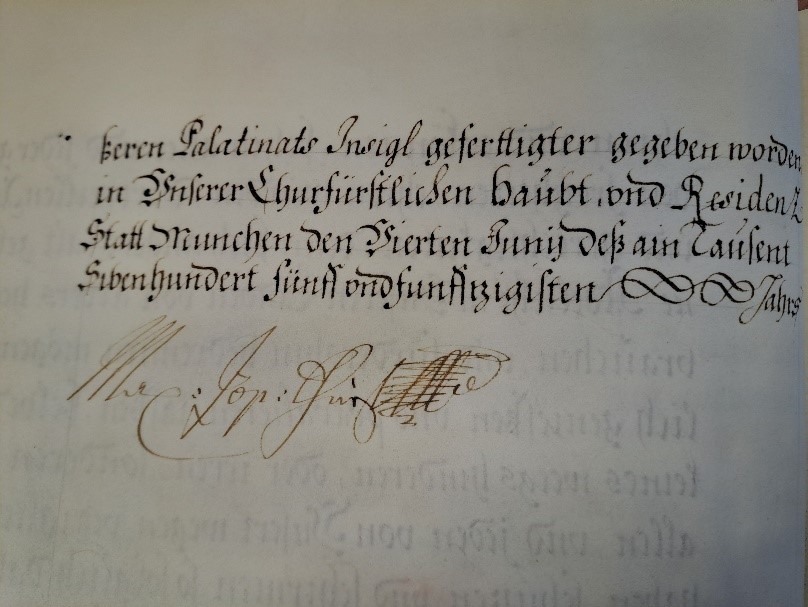 ßeren Palatinats Insigl geferttigter gegeben worden
in Vnserer Churfürstlichen Haubt, vnd Residenz
Statt Munchen den Vierten Junij deß ain Tausent
Sibenhundert fünff vnd funfftzigisten Jahrs
Max: Jos: Chur